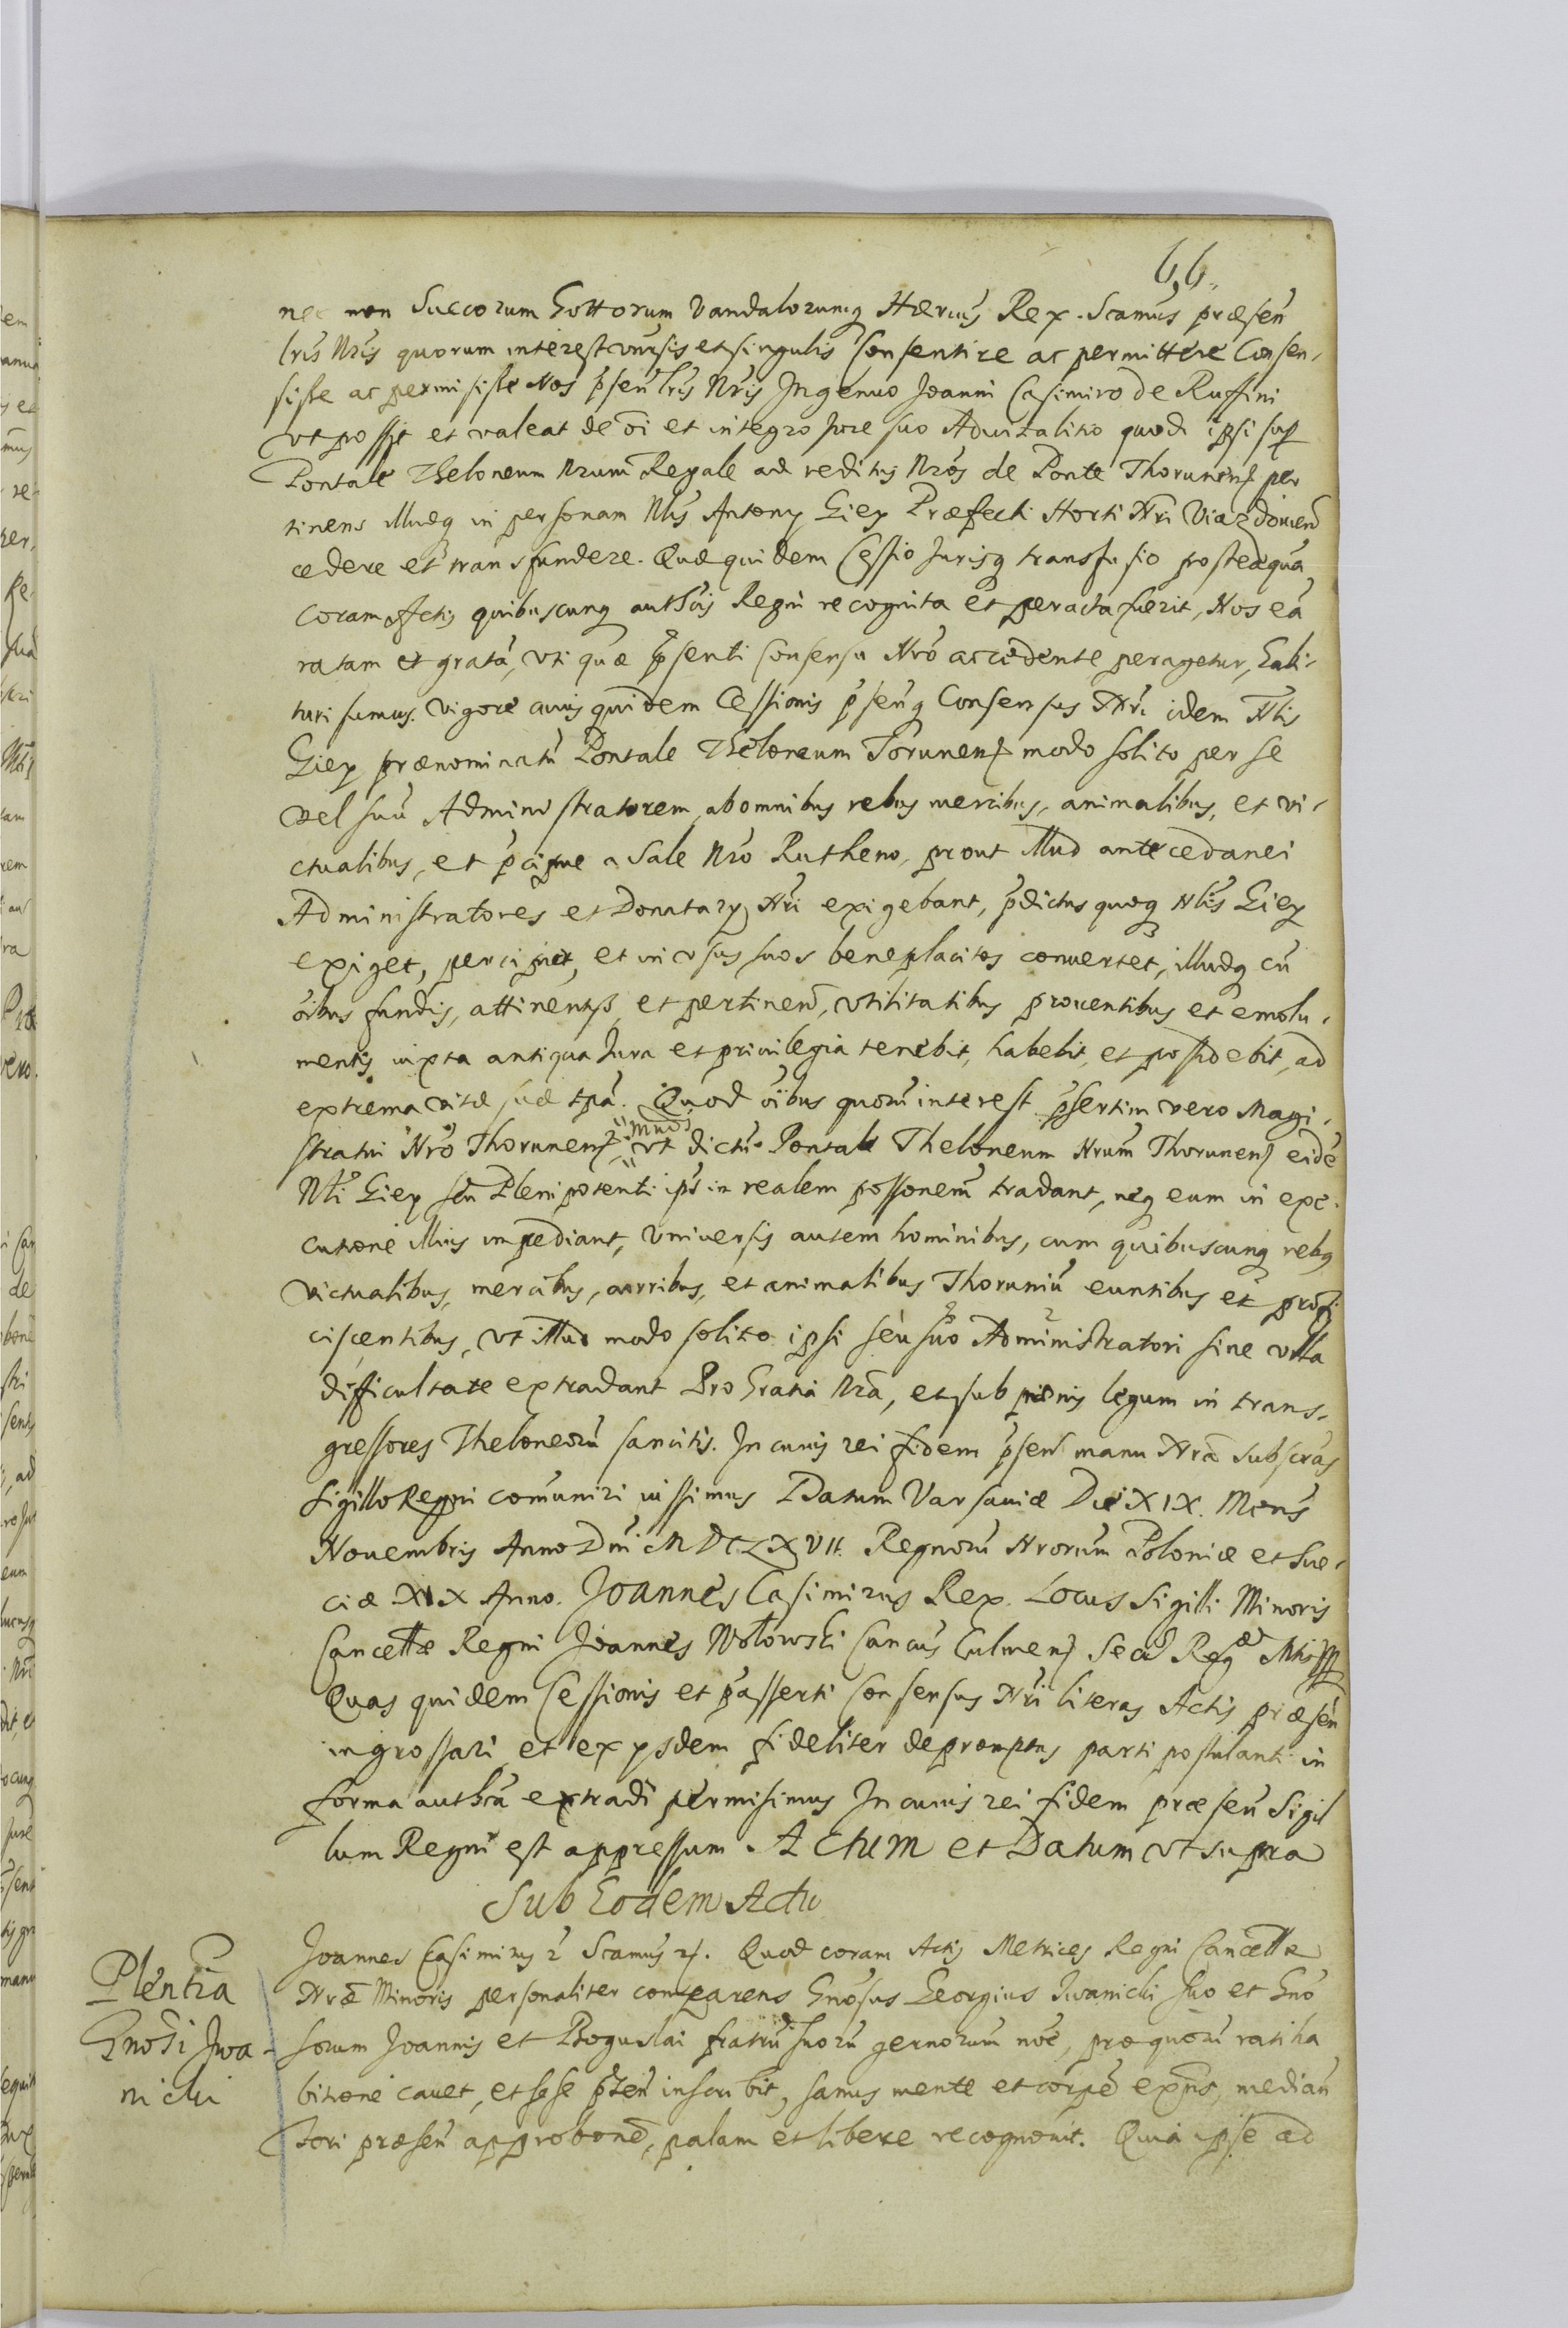 66.
nec non Suecorum Gottorum Vandalorumq Hærius̃ Rex. Scamus̃ præseñ
lris̃ Nris̃ quorum interest vnirsis et singulis Consentire ac permittere Consen-
sisse ac permisisse Nos p̃señ lris̃ Nris̃ Ingenuo Joanni Casimiro de Ruffini
vt possit et valeat de õi et integro Jure suo Aduitalitio quod ipsi sup
Pontale Theloneum Nrum̃ Regale ad reditus Nros̃ de Ponte Thorunenſ per
tinens illudq in personam Nlis̃ Antony Giey Præfecti Horti Nrĩ Viazdouien̄
cedere et transfundere. Quæ quidem Cessio Jurisq transfusio posteaqua
coram Actis quibuscunq authcis̃ Regni recognita et peracta fuerit, Nos eã
ratam et gratã, vti quæ p̃senti Consensu Nrõ accedente peragetur, habi-
turi sumus. Vigore cuius quidem Cessionis p̃señq Consensus Nri̇̃ idem Nlis̃
Giey prænominatũ Pontale Theloneum Torunenſ modo solito per se
vel suũ Administratorem, ab omnibus rebus mercibus, animalibus, et vi-
ctualibus, et p̃cipue a Sale Nrõ Rutheno, prout illud antecedanei
Administratores et Donatary Nri̇̃ exigebant, p̃dictus quoq Nlis̃ Giey
exiget, percipiet, et in vsus suos beneplacitos conuertet, illudq cũ
õibus fundis, attinentys et pertinen̄, vtilitatibus prouentibus et emolu-
mentis iuxta antiqua Jura et priuilegia tenebit, habebit, et possidebit, ad
extrema vitæ suæ tpã. Quod õibus quorũ interest p̃sertim vero Magi-
stratui Nrõ Thorunenſ mdo vt dictũ Pontale Theloneum Nrum̃ Thorunenſ eidẽ
Nli̇̃ Giey seu Plenipotenti ips̃ in realem possonem̃ tradant, neq eum in exe-
cutione illius impediant, Vniuersis autem hominibus, cum quibuscunq rebq
victualibus, mercibus, curribus, et animalibus Thoruniũ euntibus et profi-
ciscentibus, vt illud modo solito ipsi seu suo Administratori sine vlla
difficultate extradant Pro Gratia Nrã, et sub pænis legum in trans-
gressores Theloneorũ sancitis. In cuius rei fidem p̃señ manu Nrã subscras̃
Sigillo Regni com̃uniri iussimus Datum Varsauiæ Die XIX. Mens̃
Nouembris Anno Dni̇̃ MDCLXVII. Regnorũ Nrorum̃ Poloniæ et Sue-
ciæ XIX Anno. Joannes Casimirus Rex. Locus Sigilli Minoris
Cancellæ Regni Joannes Wołowski Cancus̃ Culmenſ Secr Regæ Mtis
Quas quidem Cessionis et p̃asserti Consensus Nri̇̃ literas Actis præseñ
ingrossari et ex ysdem fideliter depromptas parti postulanti in
forma authcã extradi permisimus In cuius rei fidem præseñ Sigil
lum Regni est appressum. Actum et Datum vt supra
Sub Eodem Actu
Plentia
Gnosi Iwa-
nicki
Joannes Casimirus 2 Scamus̃ 2. Quod coram Actis Metrices Regni Cancellæ
Nræ̃ Minoris personaliter comparens Gnosus̃ Georgius Iwanicki suo et Gno
sorum Joannis et Boguslai fratrũ suorũ germorum nõe, pro quorũ ratiha
bitione cauet, et sese p̃señ inscribit, sanus mente et corpẽ exñs, median̄
tori præseñ approbone, palam et libere recognouit. Quia ipse ad